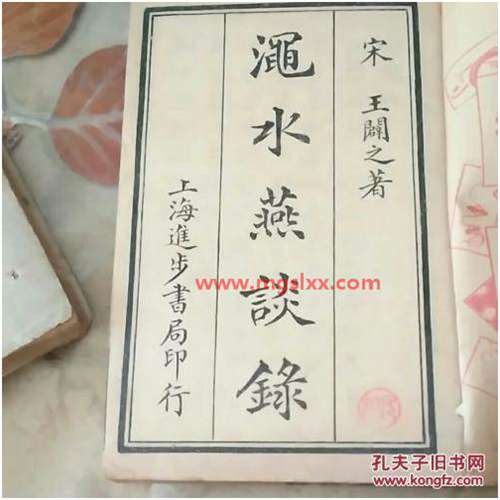 宋 王闢之著
澠水燕談錄
上海進步書局印行
www.mgslxx.com
孔夫子旧书网
www.kongfz.com